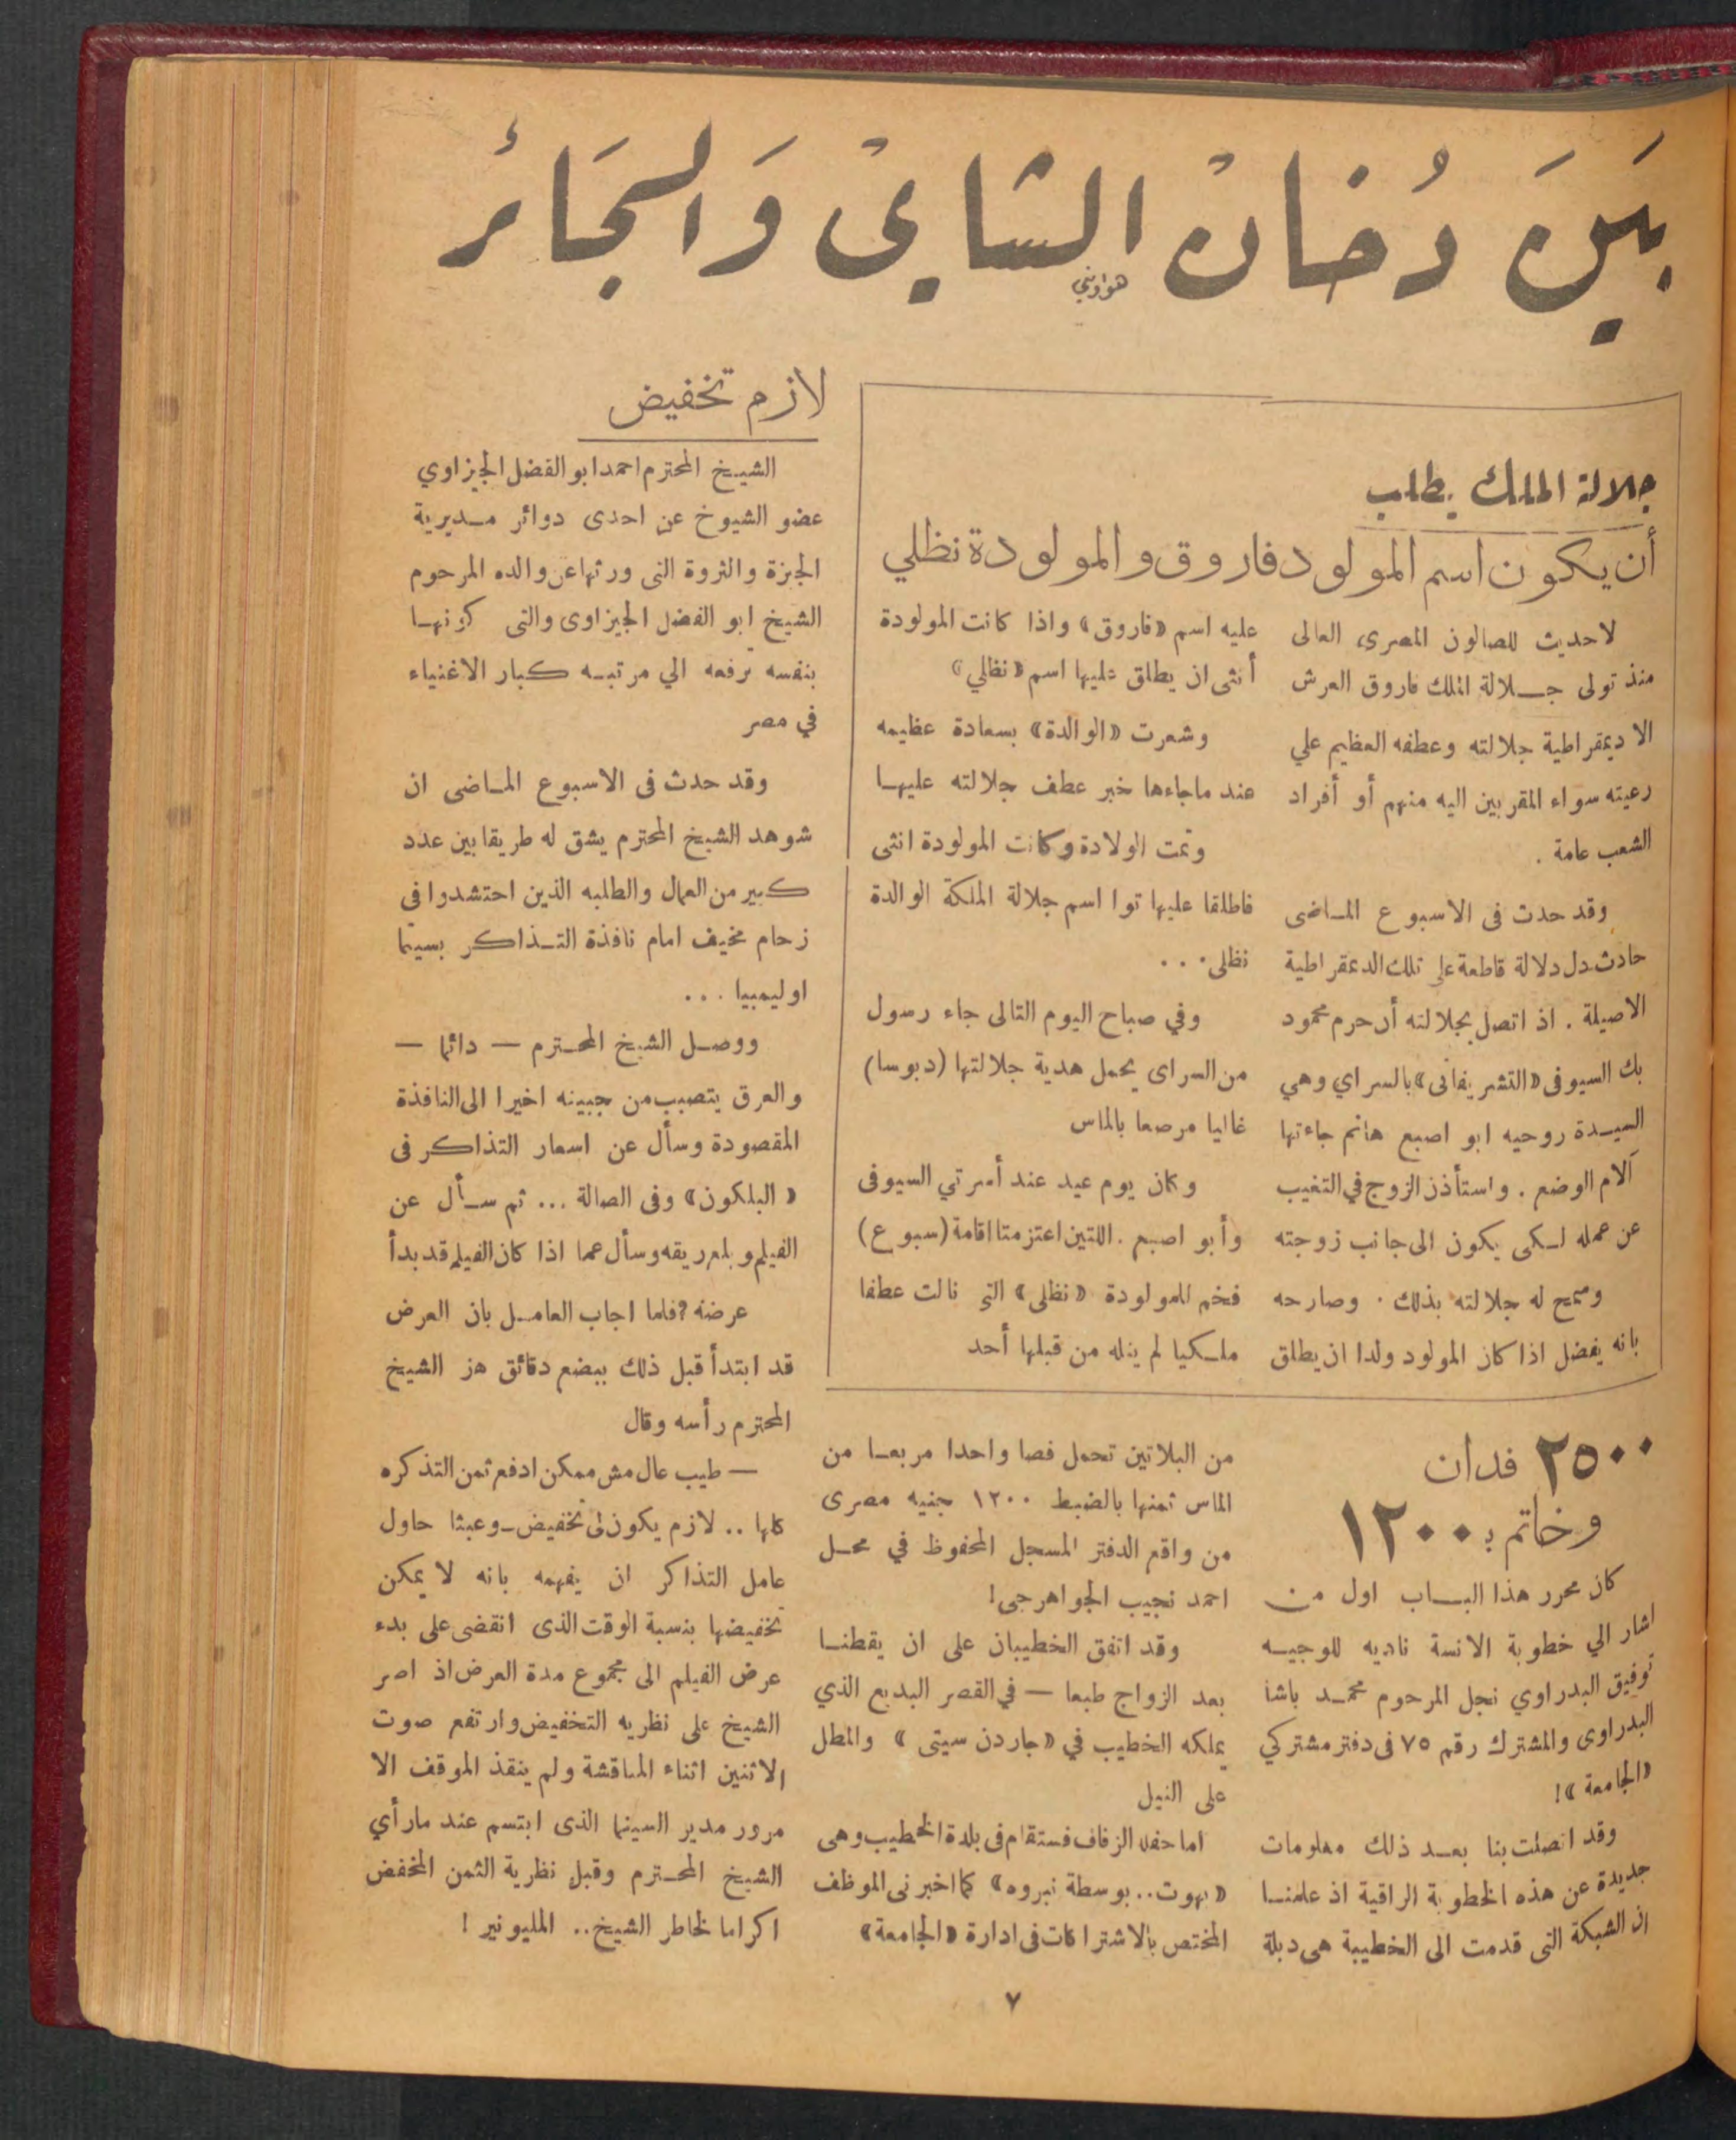 بَينَ دُخانْ الشايْ وَالسجَائر
هواويني
جلالة الملك يطلب
أن يكون اسم المولود فاروق والمولودة نظلي
لا حديث للصالون المصرى العالى
منذ تولى جـلالة الملك فاروق العرش
الا ديمقراطية جلالته وعطفه العظيم علي
رعيته سواء المقربين اليه منهم أو أفراد
الشعب عامة .
وقد حدث فى الاسبوع المـاضى
حادث دل دلالة قاطعة على تلك الديمقراطية
الاصيلة . اذ اتصل بجلالته أن حرم محمود
بك السيوفى «التشريفاتى» بالسراي وهي
السيـدة روحيه ابو اصبع هانم جاءتها
آلام الوضع . واستأذن الزوج في التغيب
عن عمله لـكى يكون الى جانب زوجته
وسمح له جلالته بذلك . وصارحه
بانه يفضل اذا كان المولود ولدا ان يطلق
عليه اسم «فاروق» واذا كانت المولودة
أنثى ان يطلق عليها اسم «نظلي»
وشعرت «الوالدة» بسعادة عظيمه
عند ماجاءها خبر عطف جلالته عليهـا
وتمت الولادة وكانت المولودة انثى
فاطلقا عليها توا اسم جلالة الملكة الوالدة
نظلى . . .
وفي صباح اليوم التالى جاء رسول
من السراى يحمل هدية جلالتها (دبوسا)
غاليا مرصعا بالماس
وكان يوم عيد عند أسرتي السيوفى
وأبو اصبع . اللتين اعتزمتا اقامة (سبوع)
فخم للمولودة «نظلى» التى نالت عطفا
ملـكيا لم ينله من قبلها أحد
٢٥٠٠ فدان
وخاتم بـ ١٢٠٠
كان محرر هذا البــاب اول مـن
اشار الي خطوبة الانسة ناديه للوجيـه
توفيق البدراوي نجل المرحوم محمـد باشا
البدراوى والمشترك رقم ٧٥ فى دفتر مشتركي
«الجامعة»!
وقد اتصلت بنا بعـد ذلك معلومات
جديدة عن هذه الخطوبة الراقية اذ علمنـا
ان الشبكة التى قدمت الى الخطيبة هى دبلة
من البلاتين تحمل فصا واحدا مربعـا من
الماس ثمنها بالضبط ١٢٠٠ جنيه مصرى
من واقع الدفتر المسجل المحفوظ في محـل
احمد نجيب الجواهرجى!
وقد اتفق الخطيبان على ان يقطنـا
بعد الزواج طبعا — في القصر البديع الذي
يملكه الخطيب في «جاردن سيتى» والمطل
على النيل
اما حفله الزفاف فستقام فى بلدة الخطيب وهى
«بهوت.. بوسطة نبروه» كما اخبرنى الموظف
المختص بالاشتراكات فى ادارة «الجامعة»
لازم تخفيض
الشيخ المحترم احمد ابو الفضل الجيزاوي
عضو الشيوخ عن احدى دوائر مـديرية
الجيزة والثروة التى ورثها عن والده المرحوم
الشيخ ابو الفضل الجيزاوى والتى كونهـا
بنفسه ترفعه الي مرتبـه كبار الاغنياء
في مصر
وقد حدث فى الاسبوع المـاضى ان
شوهد الشيخ المحترم يشق له طريقا بين عدد
كبير من العمال والطلبه الذين احتشدوا في
زحام مخيف امام نافذة التـذاكر بسينما
اوليمبيا . . .
ووصـل الشيخ المحـترم — دائما —
والعرق يتصبب من جبينه اخيرا الى النافذة
المقصودة وسأل عن اسعار التذاكر فى
«البلكون» وفى الصالة ... ثم سـأل عن
الفيلم وبلع ريقه وسأل عما اذا كان الفيلم قد بدأ
عرضه؟ فلما اجاب العامـل بان العرض
قد ابتدأ قبل ذلك ببضع دقائق هز الشيخ
المحترم رأسه وقال
— طيب عال مش ممكن ادفع ثمن التذكره
كلها .. لازم يكون لى تخفيض ـ وعبثا حاول
عامل التذاكر ان يفهمه بانه لا يمكن
تخفيضها بنسبة الوقت الذى انقضى على بدء
عرض الفيلم الى مجموع مدة العرض اذ اصر
الشيخ على نظريه التخفيض وارتفع صوت
الاثنين اثناء المناقشة ولم ينقذ الموقف الا
مرور مدير السينما الذى ابتسم عند مارأي
الشيخ المحـترم وقبل نظرية الثمن المخفض
اكراما لخاطر الشيخ.. المليونير !
٧